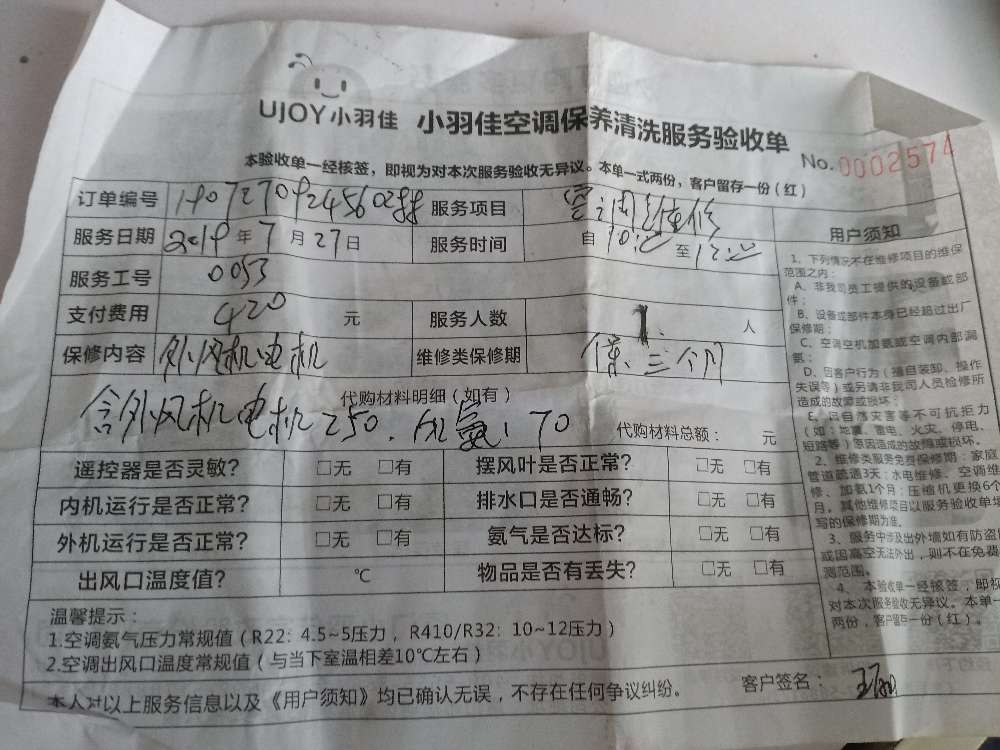 UJOY小羽佳 小羽佳空调保养清洗服务验收单
No.0002574
本验收单一经核签，即视为对本次服务验收无异议。本单一式两份，客户留存一份（红）
订单编号 服务项目 空调维修
服务日期 2019年7月27日 服务时间 自10:00至12:00
服务工号 0053
支付费用 420 元 服务人数 1. 人
保修内容 外风机电机 维修类保修期 保三个月
代购材料明细（如有）
含外风机电机250. 70
代购材料总额： 元
遥控器是否灵敏？ □无 □有 摆风叶是否正常？ □无 □有
内机运行是否正常？ □无 □有 排水口是否通畅？ □无 □有
外机运行是否正常？ □无 □有 氨气是否达标？ □无 □有
出风口温度值？ ℃ 物品是否有丢失？ □无 □有
温馨提示：
1.空调氨气压力常规值（R22：4.5~5压力，R410/R32：10~12压力）
2.空调出风口温度常规值（与当下室温相差10℃左右）
本人对以上服务信息以及《用户须知》均已确认无误，不存在任何争议纠纷。
客户签名：
用户须知
1、下列情况不存在维修项目的维保
范围之内：
A、非我司员工提供的设备或部
件；
B、设备或部件本身已经超过出厂
保修期；
C、空调空机加氨或空调内部漏
氨；
D、因客户行为（擅自装卸、操作
失误等）或另请非我司人员检修所
造成的故障或损坏；
E、因自然灾害等不可抗拒力
（如：地震、雷电、火灾、停电、
短路等）原因造成的故障或损坏。
2、维修类服务免费保修期：家庭
管道疏通3天；水电维修、空调维
修、加氨1个月；压缩机更换6个
月，其他维修项目以服务验收单填
写的保修期为准。
3、服务中涉及出外墙如有防盗
或因高空无法外出，则不在免器
测范围。
4、本验收单一经核签，即视
对本次服务验收无异议。本单一
两份，客户留存一份（红）。